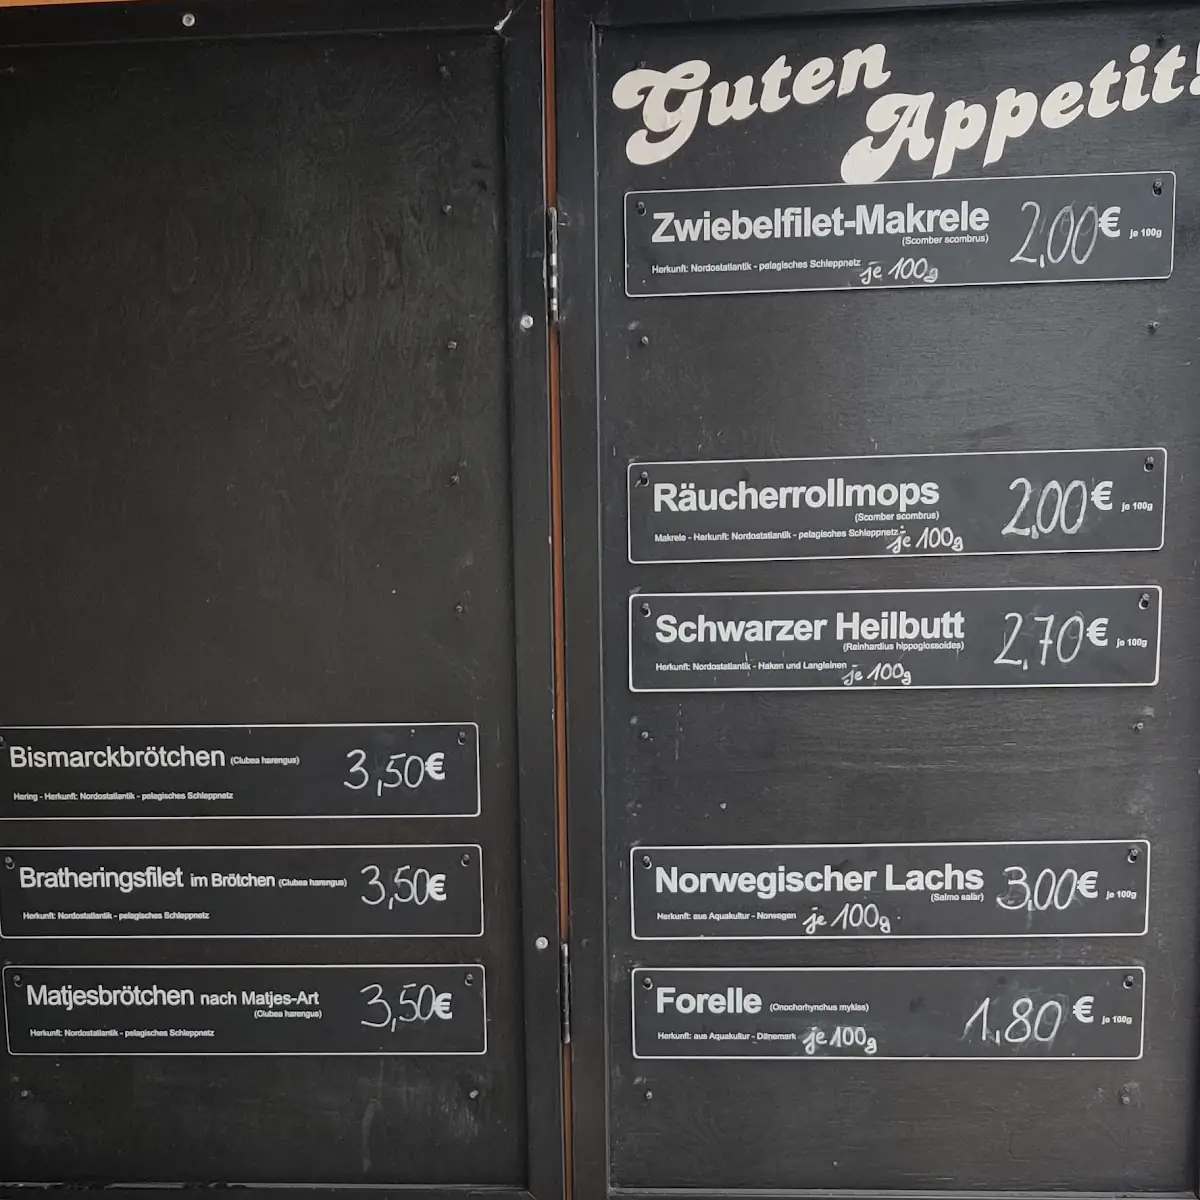 Bismarckbrötchen (Clubea harengus) 3,50€
Hering - Herkunft: Nordostatlantik - pelagisches Schleppnetz
Bratheringsfilet im Brötchen (Clubea harengus) 3,50€
Herkunft: Nordostatlantik - pelagisches Schleppnetz
Matjesbrötchen nach Matjes-Art 3,50€
(Clubea harengus)
Herkunft: Nordostatlantik - pelagisches Schleppnetz
Guten
Appetit!
Zwiebelfilet-Makrele 2,00€ je 100g
(Scomber scombrus)
Herkunft: Nordostatlantik - pelagisches Schleppnetz je 100g
Räucherrollmops 2,00€ je 100g
(Scomber scombrus)
Makrele - Herkunft: Nordostatlantik - pelagisches Schleppnetz - je 100g
Schwarzer Heilbutt 2,70€ je 100g
(Reinhardius hippoglossoides)
Herkunft: Nordostatlantik - Haken und Langleinen je 100g
Norwegischer Lachs 3,00€ je 100g
(Salmo salar)
Herkunft: aus Aquakultur - Norwegen je 100g
Forelle (Onochorhynchus mykiss) 1,80€ je 100g
Herkunft: aus Aquakultur - Dänemark je 100g